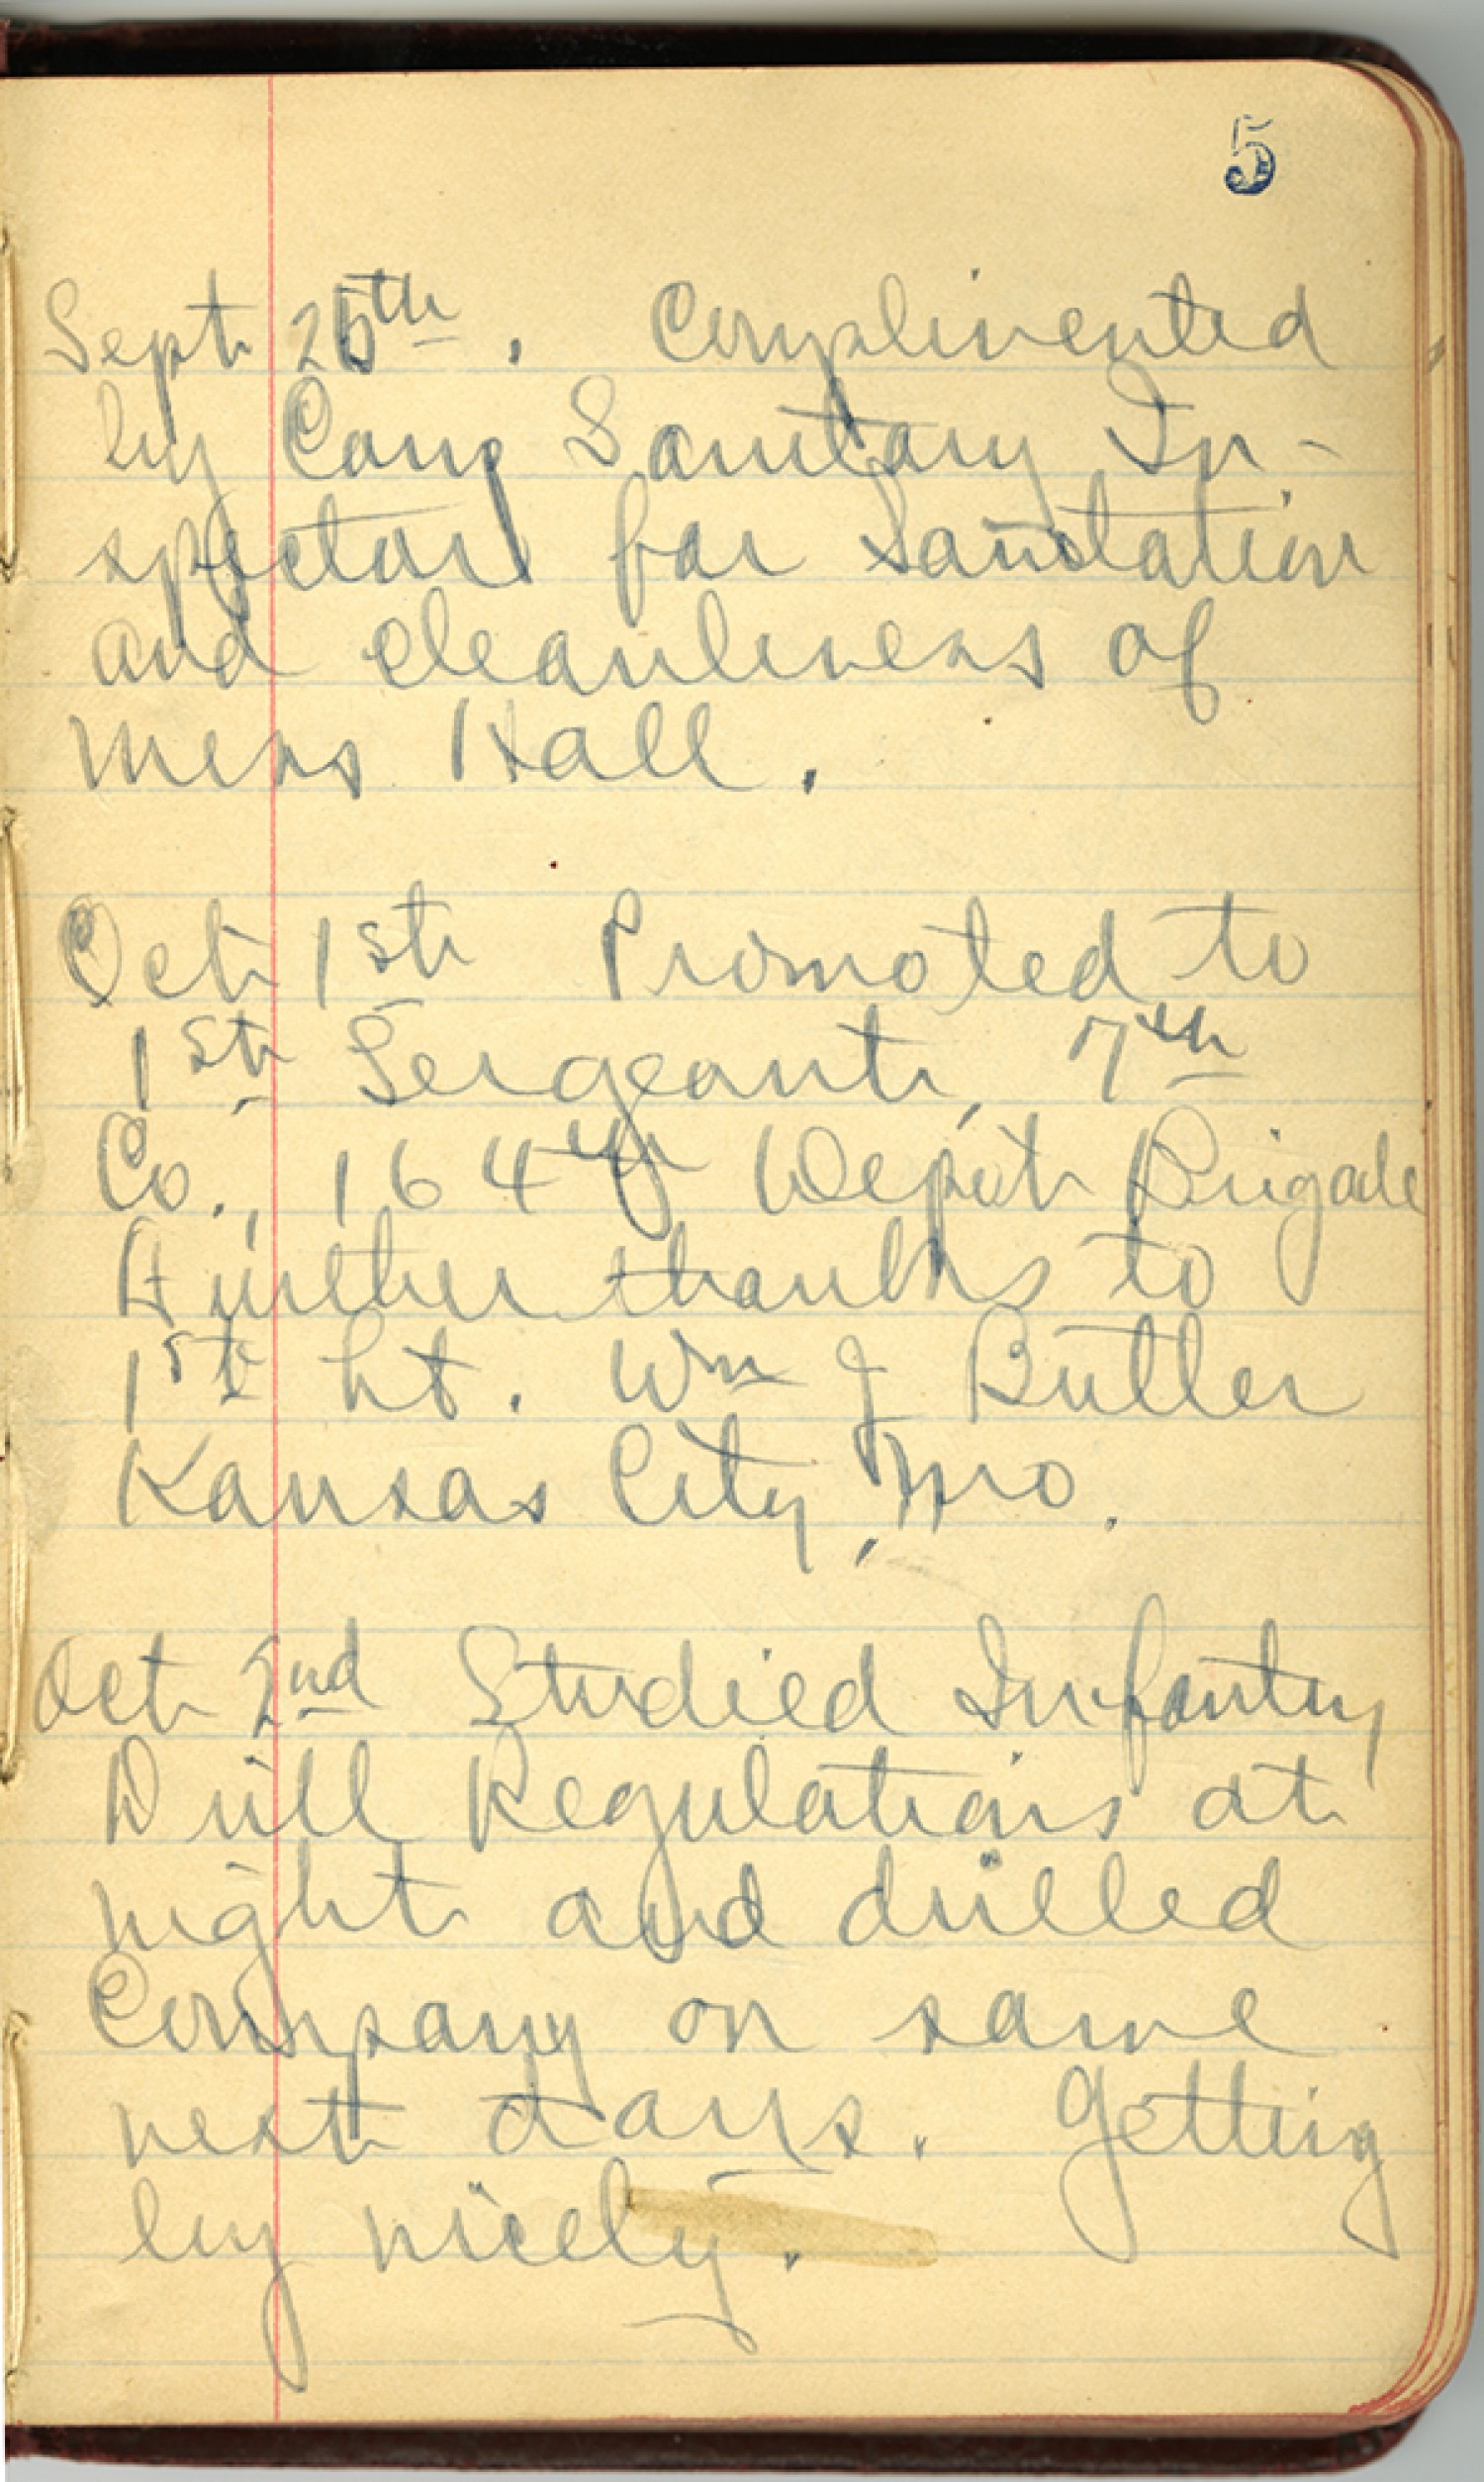 5
Sept 25th. Complimented
by Camp Sanitary In-
spector for Sanitation
and cleanliness of
mess Hall.
Oct 1st Promoted to
1st Sergeant, 7th
Co., 164th Depot Brigade
Further thanks to
1st Lt. Wm J Butler
Kansas City, Mo.
Oct 2nd Studied Infantry
Drill Regulations at
night and drilled
Company on same
next days. Getting
by nicely.